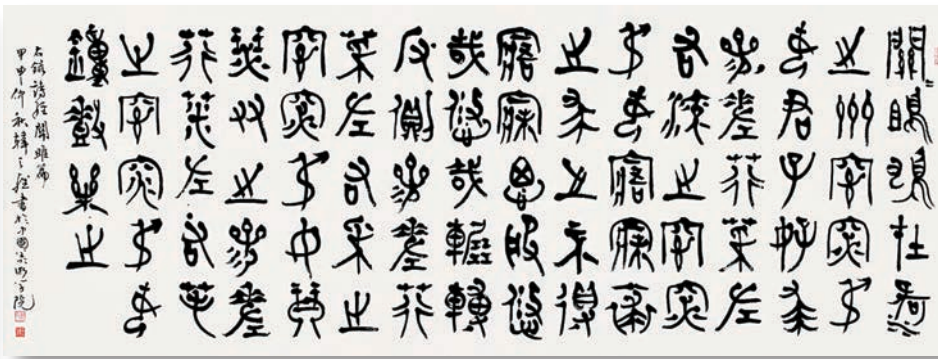 關〻雎鳩在河
之州窈窕淑
女君子好求
參差荇菜左
右流之窈窕
淑女寤寐求
之求之不得
寤寐思服悠
哉悠哉輾轉
反側參差荇
菜左右采之
窈窕淑女琴
瑟友之參差
荇菜左右芼
之窈窕淑女
鐘鼓樂之
右錄詩經關雎篇
甲申仲秋韓天雍書於中國美術學院